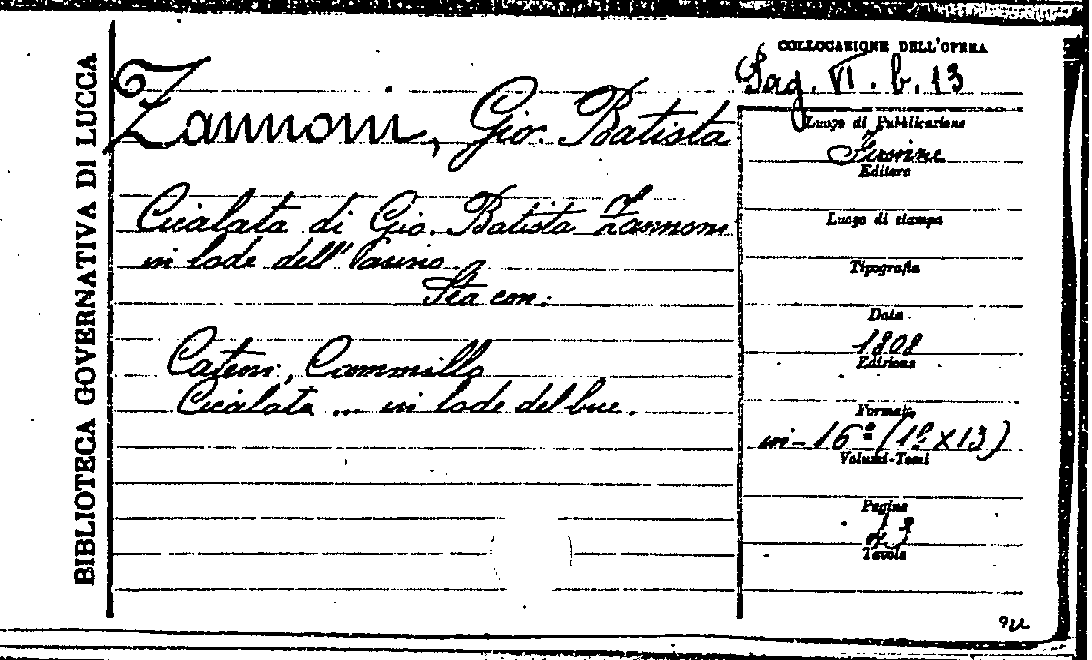 BIBLIOTECA GOVERNATIVA DI LUCCA
COLLOCAZIONE DELL'OPERA
VI. b. 13
Zannoni, Gio. Batista
Cicalata di Gio. Batista Zannoni
in lode dell'Asino
Sta con:
Cateni, Cammillo
Cicalata ... in lode del bue.
Luogo di Pubblicazione
Firenze
Editore
Luogo di stampa
Tipografia
Data
1808
Edizione
Formato
in-16º (19x13)
Volumi-Tomi
Pagine
43
Tavole